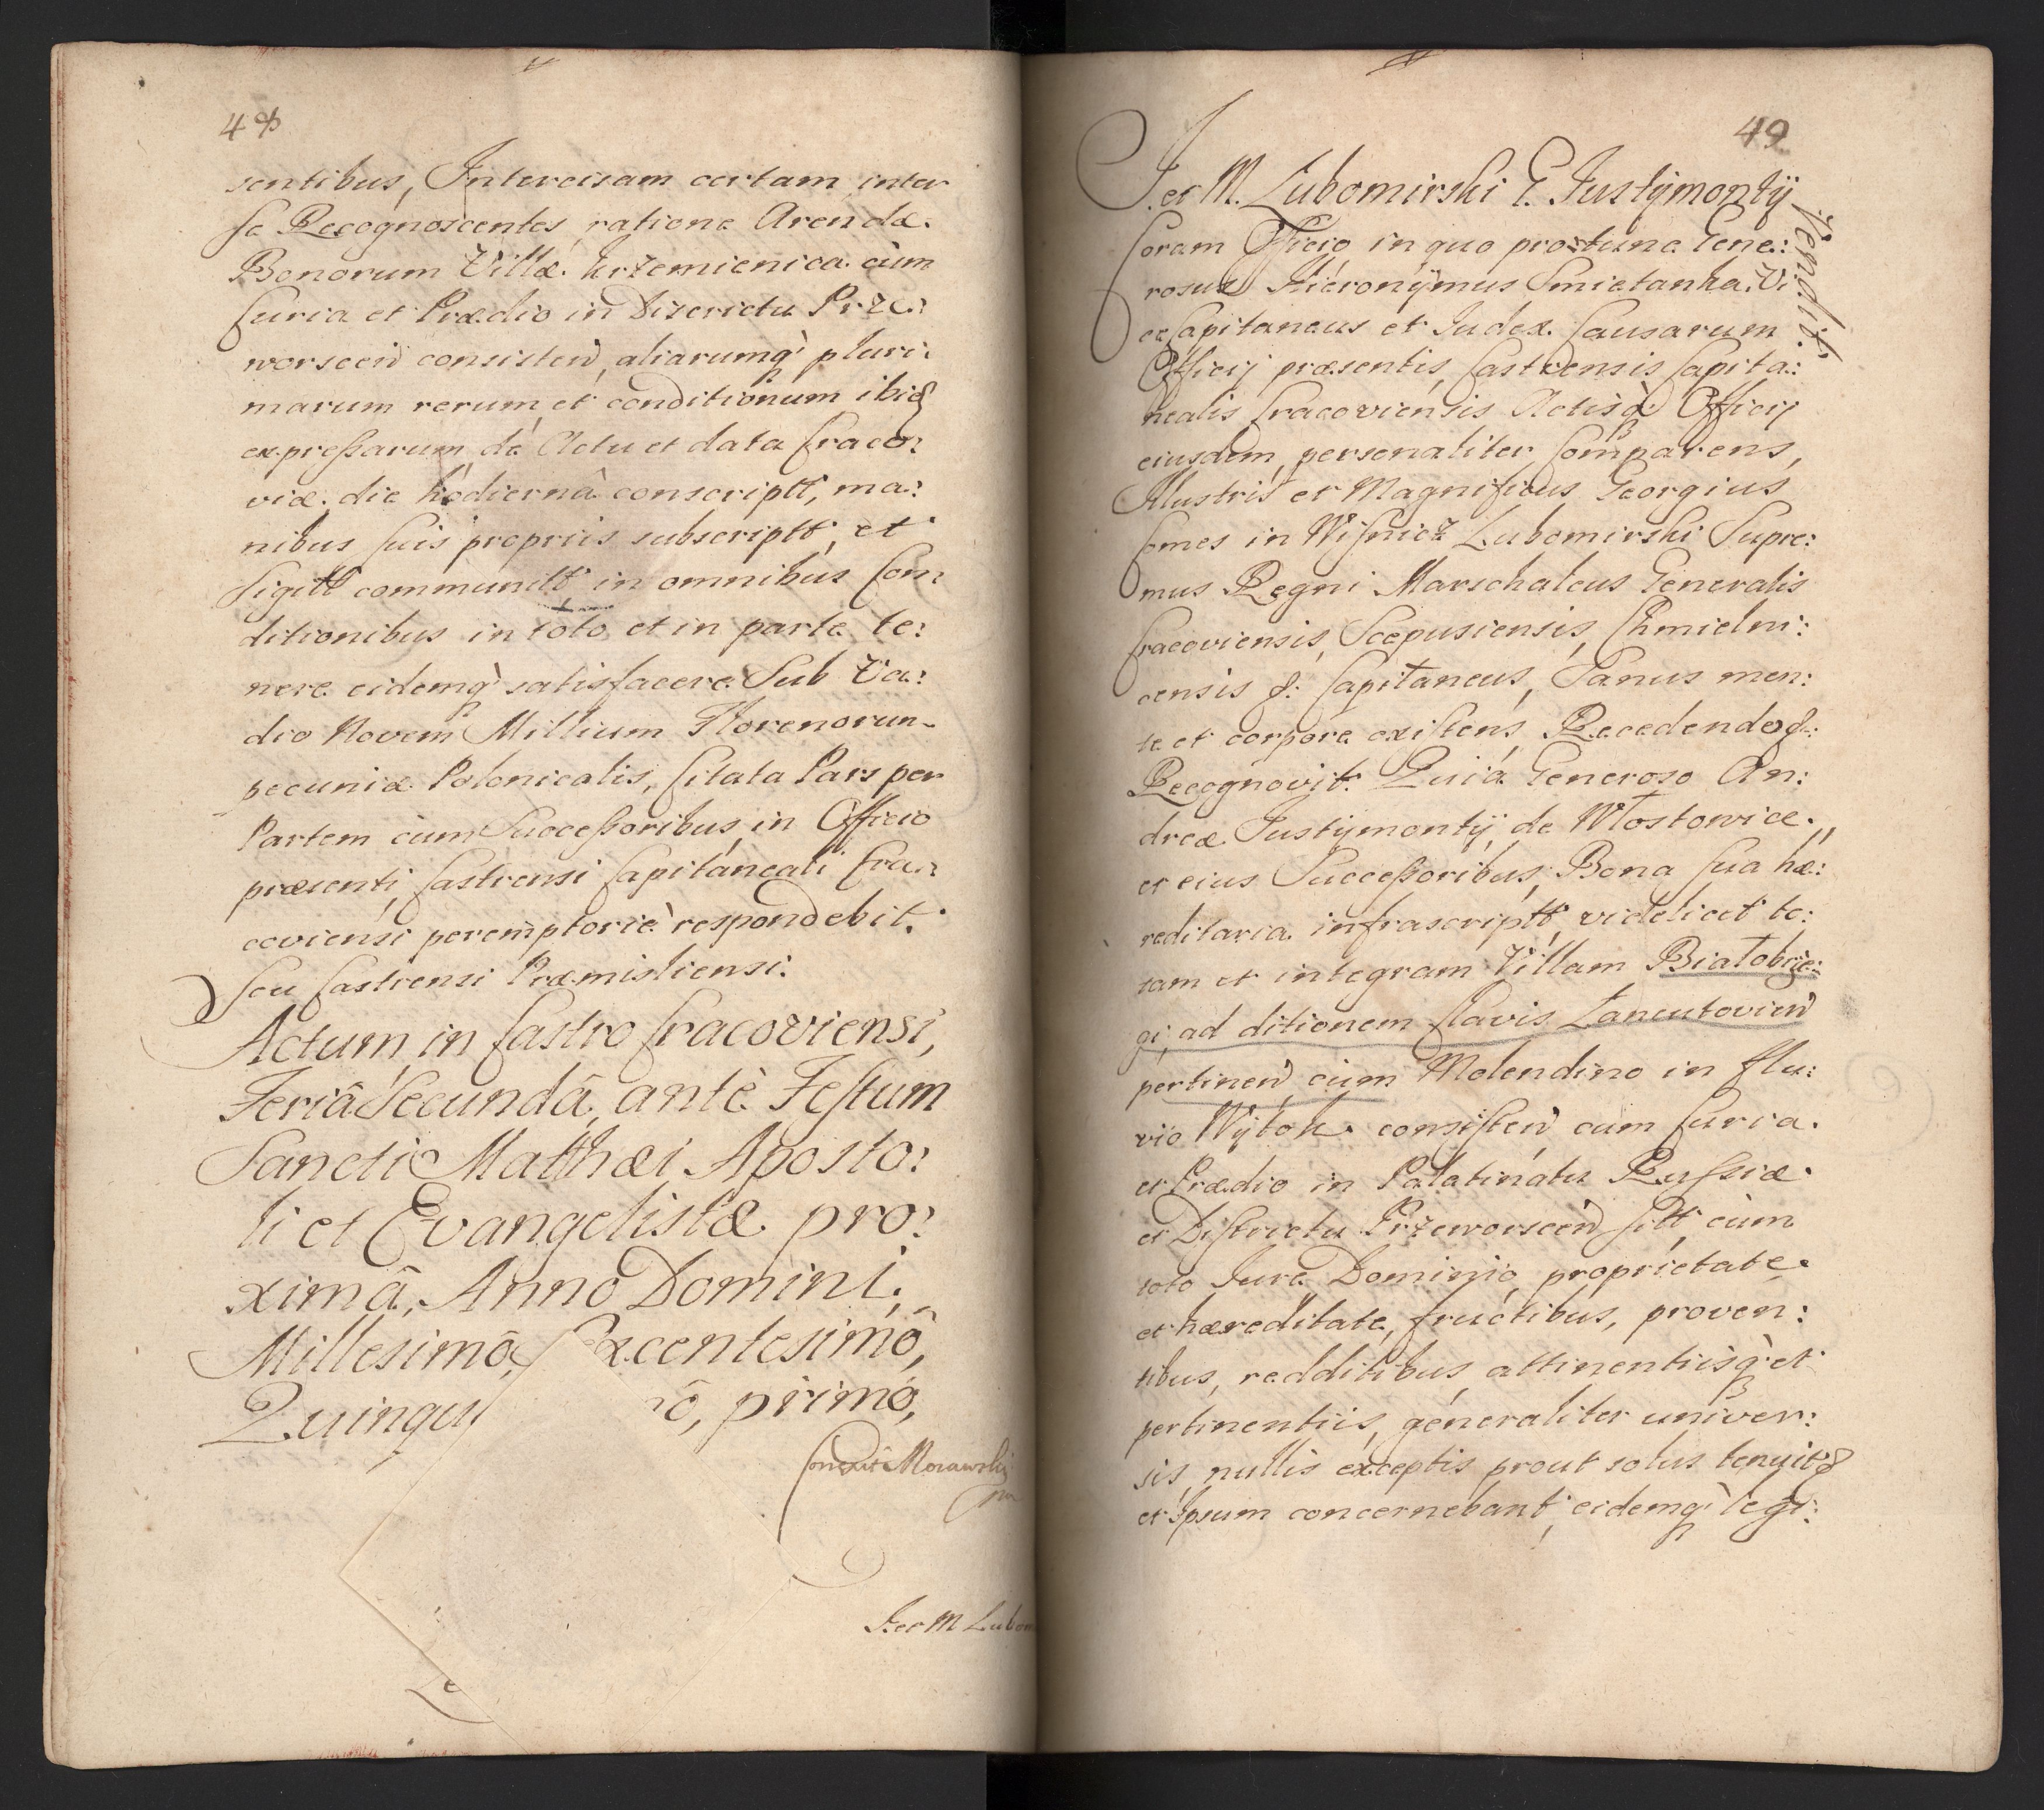 48
sentibus, Intercisam certam inter
se Recognoscentes, ratione Arendæ.
Bonorum Villæ. Krzemienica. cùm
Curia et Prædio in Districtu Prze:
worscen̄ consisten̄, aliarumq̀ pluri:
marum rerum et conditionum ibid
expressarum, de Actu et data Craco:
viæ. die hodiernâ conscriptt, ma:
nibus suis propriis subscriptt, et
Sigitt communitt, in omnibus Con:
ditionibus in toto et in parte te:
nere eidemq̀ satisfacere. Sub Va:
dio Novem Millium Florenorum
pecuniæ Polonicalis, Citata Pars per
Partem cùm Successoribus, in Officio
præsenti, Castrensi Capitaneali Cra:
coviensi peremptoriè respondebit.
Seu Castrensi Præmisliensi.
Actum in Castro Cracoviensi,
Feriâ Secundâ, antè Festum
Sancti Matthæi Aposto:
li et Evangelistæ pro:
ximâ, Anno Domini,
Millesimô, xcentesimô,
Quinqu ô, primô,
Morawski
mp
J et M Lubom
49
J. et M. Lubomirski G. Justÿmontÿ
Vendit.
Coram Officio in quo pro tunc Gene:
rosus Hieronÿmus Smietanka Vi
ce Capitaneus et Judex Causarum
Officij præsentis, Castrensis Capita:
nealis Cracoviensis Actisq̀ Officij
eiusdem, personaliter Comparens,
Illustris et Magnificus Georgius
Comes in Wisnicz Lubomirski Supre:
mus Regni Marschalcus Generalis
Cracoviensis, Scepusiensis, Chmielni:
censis &: Capitaneus, Sanus men:
te et corpore existens, Recedendo &:
Recognovit. Quia Generoso An:
dreæ Justÿmontÿ de Włostowice.,
et eius Successoribus, Bona sua hæ:
reditaria infrascriptt, videlicet to:
tam et integram Villam Białobrze:
gi, ad ditionem Clavis Łancutovien̄
pertinen̄, cùm Molendino in flu:
vio Wÿłok consisten̄ cum Curia.
et Prædio in Palatinatu Russiæ.
et Districtu Przeworscen̄ sitt, cùm
toto Jure Dominio, proprietate.
et hæreditate, fructibus, proven:
tibus, redditibus, attinentiisq̀ et
pertinentiis, generaliter univer:
sis, nullis exceptis prout solus tenuit &
et Ipsum concernebant, eidemq̀ legi: